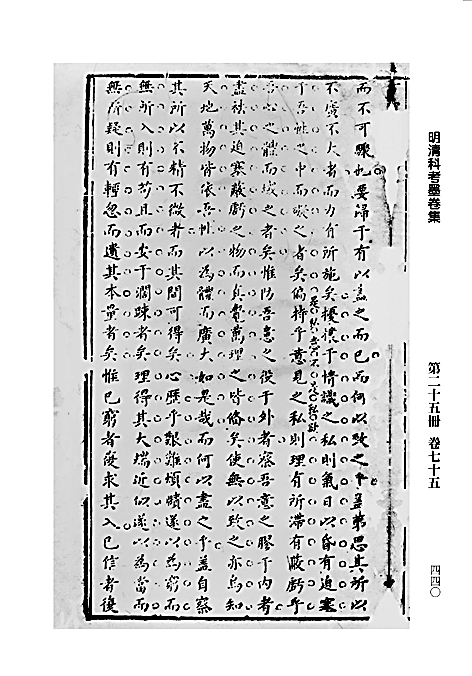 而不可驟也要歸于有以盡之而已而何以致之乎蓋嘗思其所以
不廣不大者而力有所施矣擾懷于情識之私則氣日以昏有迫塞
于吾性之中而礙之者矣偏持乎意見之私則理有所滯有蔽虧乎
吾心之體而域之者矣惟防吾意之役于外者察吾意之膠于內者
盡祛其迫塞蔽虧之物而真覺萬理之皆備矣使無以致之亦烏知
天地萬物皆依吾性以為體而廣大如是哉而何以盡之乎蓋自察
其所以不精不微者而其間可得矣心歷乎艱難煩賾遂以為窮而
無所入則有苟且而安于濶疎者矣理得其大端近似遂以為當而
無所疑則有輕忽而遺其本量者矣惟已窮者復求其入已信者復
明清科考墨卷集
第二十五冊 卷七十五
四四〇